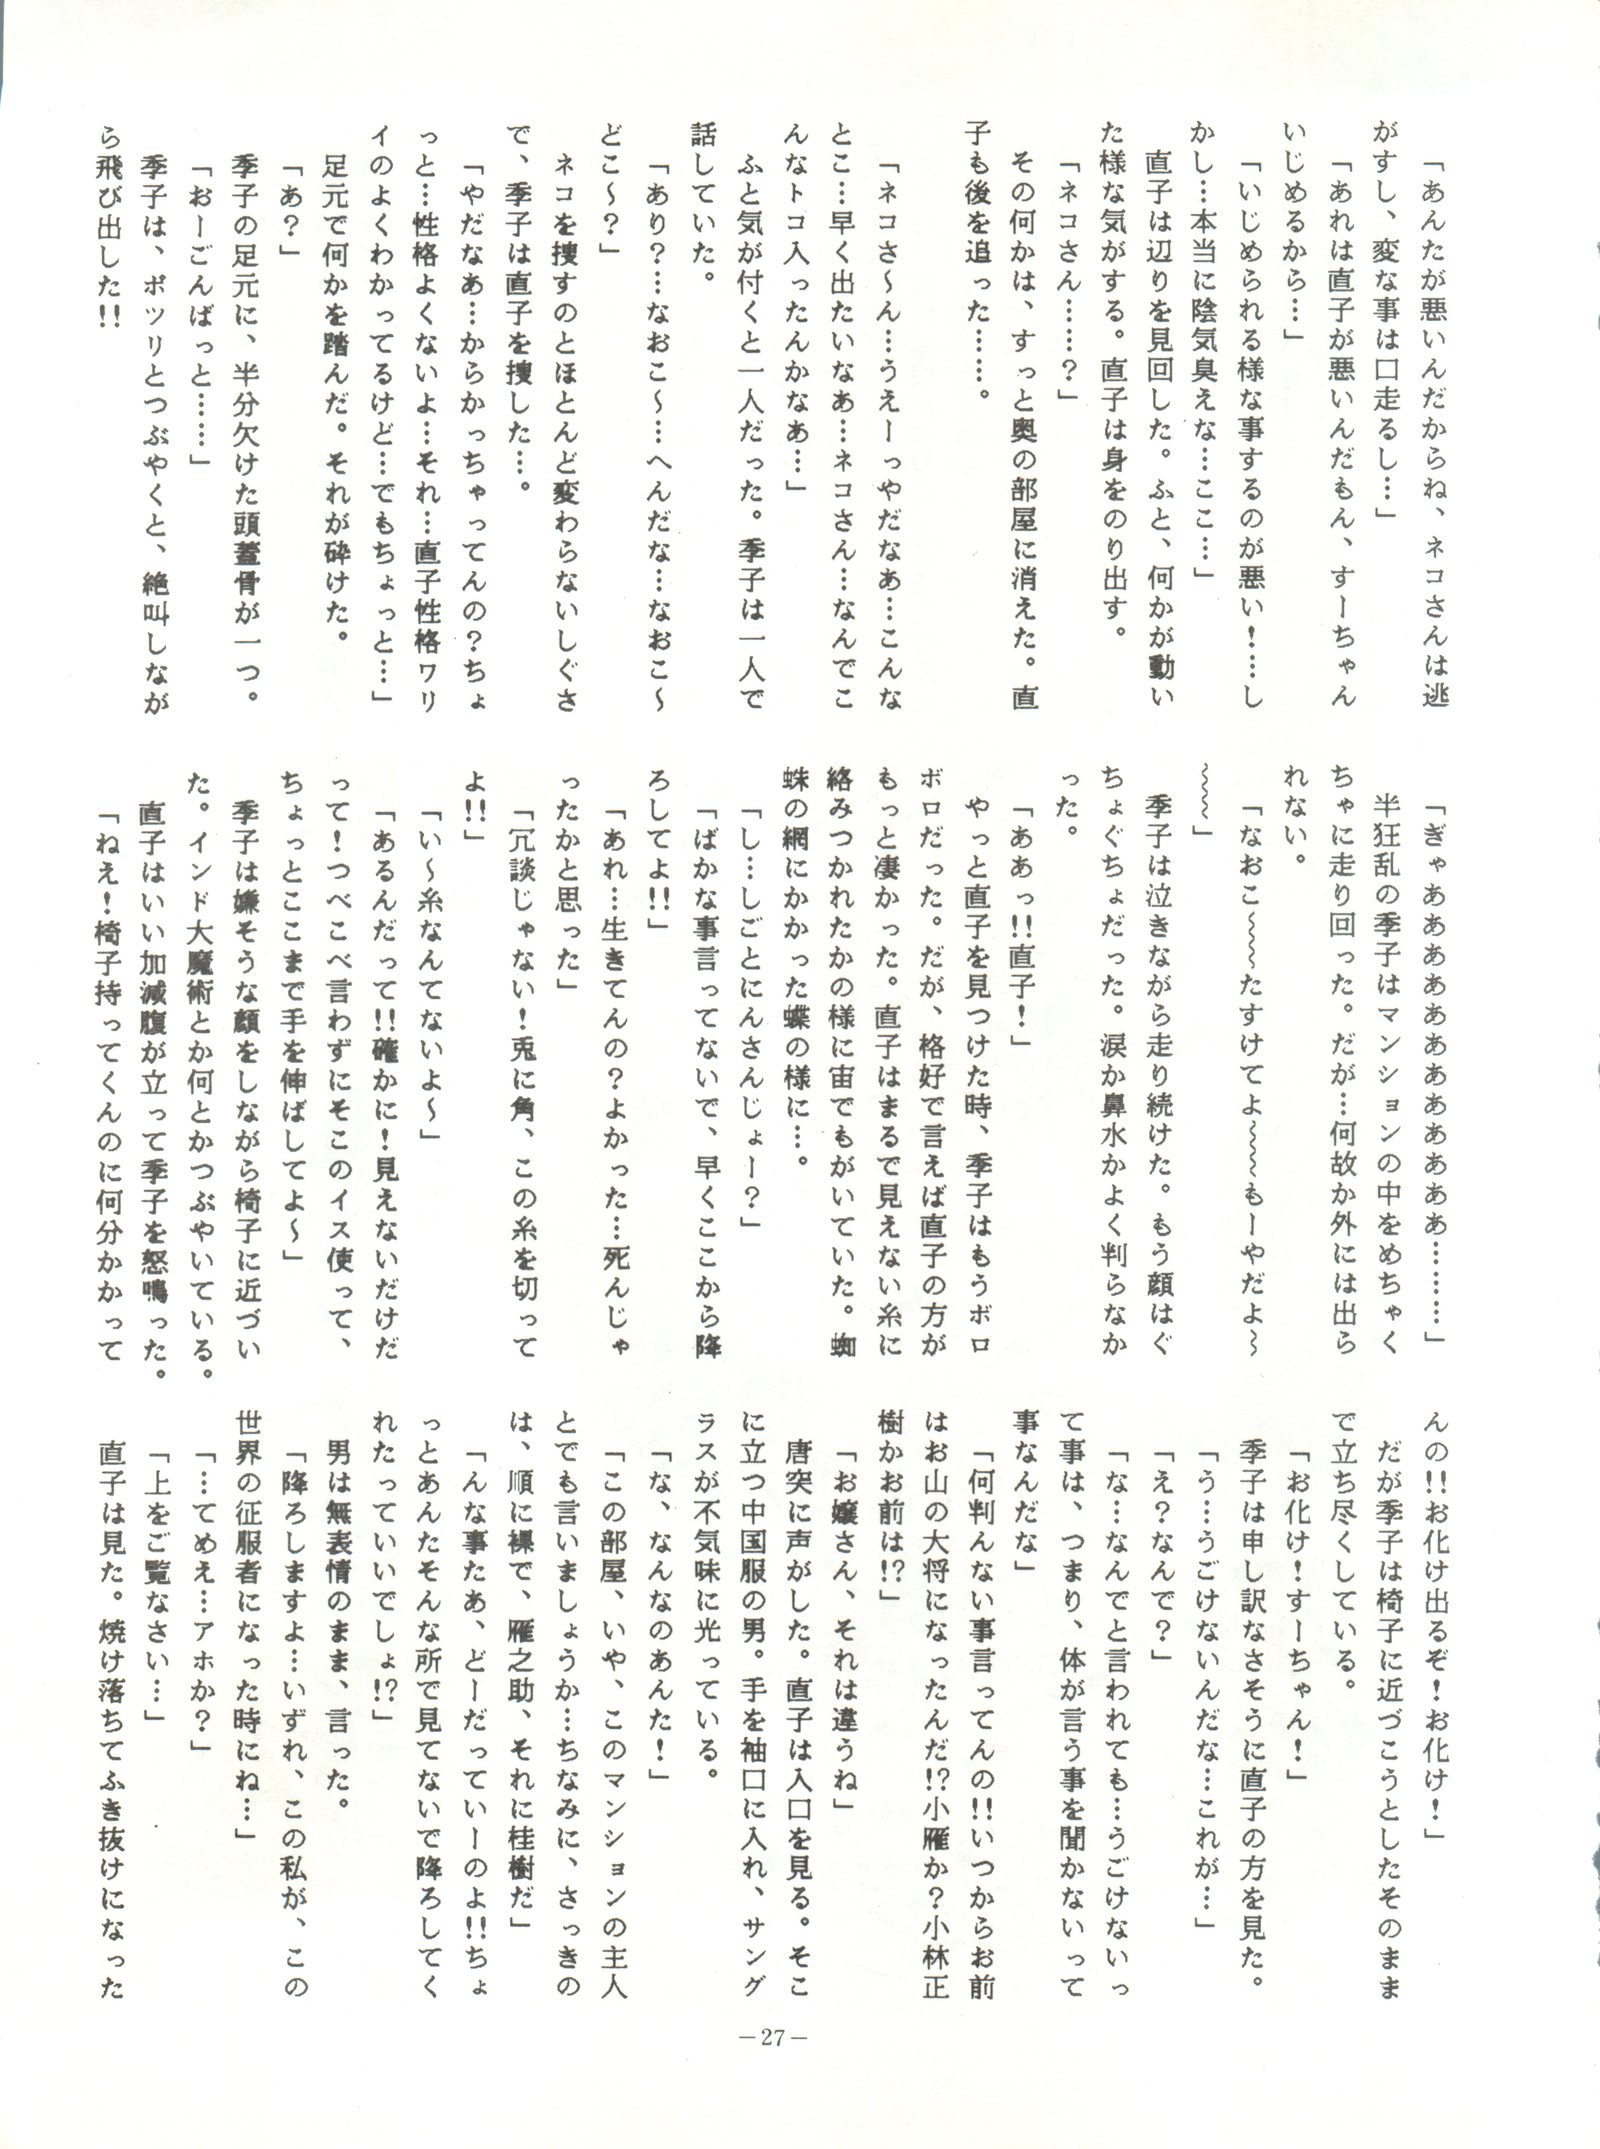 「あんたが悪いんだからね、ネコさんは逃
がすし、変な事は口走るし…」
「あれは直子が悪いんだもん、すーちゃん
いじめるから…」
「いじめられる様な事するのが悪い！…し
かし…本当に陰気臭えな…ここ…」
直子は辺りを見回した。ふと、何かが動い
た様な気がする。直子は身をのり出す。
「ネコさん……？」
その何かは、すっと奥の部屋に消えた。直
子も後を追った……。
「ネコさ〜ん…うえーっやだなあ…こんな
とこ…早く出たいなあ…ネコさん…なんでこ
んなトコ入ったんかなあ…」
ふと気が付くと一人だった。季子は一人で
話していた。
「あり？…なおこ〜…へんだな…なおこ〜
どこ〜？」
ネコを捜すのとほとんど変わらないしぐさ
で、季子は直子を捜した…。
「やだなあ…からかっちゃってんの？ちょ
っと…性格よくないよ…それ…直子性格ヮリ
イのよくわかってるけど…でもちょっと…」
足元で何かを踏んだ。それが砕けた。
「あ？」
季子の足元に、半分欠けた頭蓋骨が一つ。
「おーごんばっと……」
季子は、ボツリとつぶやくと、絶叫しなが
ら飛び出した!!
「ぎゃああああああああああああ………」
半狂乱の季子はマンションの中をめちゃく
ちゃに走り回った。だが…何故か外には出ら
れない。
「なおこ〜〜〜たすけてよ〜〜〜もーやだよ〜
〜〜〜」
季子は泣きながら走り続けた。もう顔はぐ
ちょぐちょだった。涙か鼻水かよく判らなか
った。
「ああっ!!直子！」
やっと直子を見つけた時、季子はもうボロ
ボロだった。だが、格好で言えば直子の方が
もっと凄かった。直子はまるで見えない糸に
絡みつかれたかの様に宙でもがいていた。蜘
蛛の網にかかった蝶の様に…。
「し…しごとにんさんじょー？」
「ばかな事言ってないで、早くここから降
ろしてよ!!」
「あれ…生きてんの？よかった…死んじゃ
ったかと思った」
「冗談じゃない！兎に角、この糸を切って
よ!!」
「い〜糸なんてないよ〜」
「あるんだって!!確かに！見えないだけだ
って！つべこべ言わずにそこのイス使って、
ちょっとここまで手を伸ばしてよ〜」
季子は嫌そうな顔をしながら椅子に近づい
た。インド大魔術とか何とかつぶやいている。
直子はいい加減腹が立って季子を怒鳴った。
「ねえ！椅子持ってくんのに何分かかって
んの!!お化け出るぞ！お化け！」
だが季子は椅子に近づこうとしたそのまま
で立ち尽くしている。
「お化け！すーちゃん！」
季子は申し訳なさそうに直子の方を見た。
「う…うごけないんだな…これが…」
「え？なんで？」
「な…なんでと言われても…うごけないっ
て事は、つまり、体が言う事を聞かないって
事なんだな」
「何判んない事言ってんの!!いつからお前
はお山の大将になったんだ!?小雁か？小林正
樹かお前は!?」
「お嬢さん、それは違うね」
唐突に声がした。直子は入口を見る。そこ
に立つ中国服の男。手を袖口に入れ、サング
ラスが不気味に光っている。
「な、なんなのあんた！」
「この部屋、いや、このマンションの主人
とでも言いましょうか…ちなみに、さっきの
は、順に裸で、雁之助、それに桂樹だ」
「んな事たあ、どーだっていーのよ!!ちょ
っとあんたそんな所で見てないで降ろしてく
れたっていいでしょ!?」
男は無表情のまま、言った。
「降ろしますよ…いずれ、この私が、この
世界の征服者になった時にね…」
「…てめえ…アホか？」
「上をご覧なさい…」
直子は見た。焼け落ちてふき抜けになった
－27－